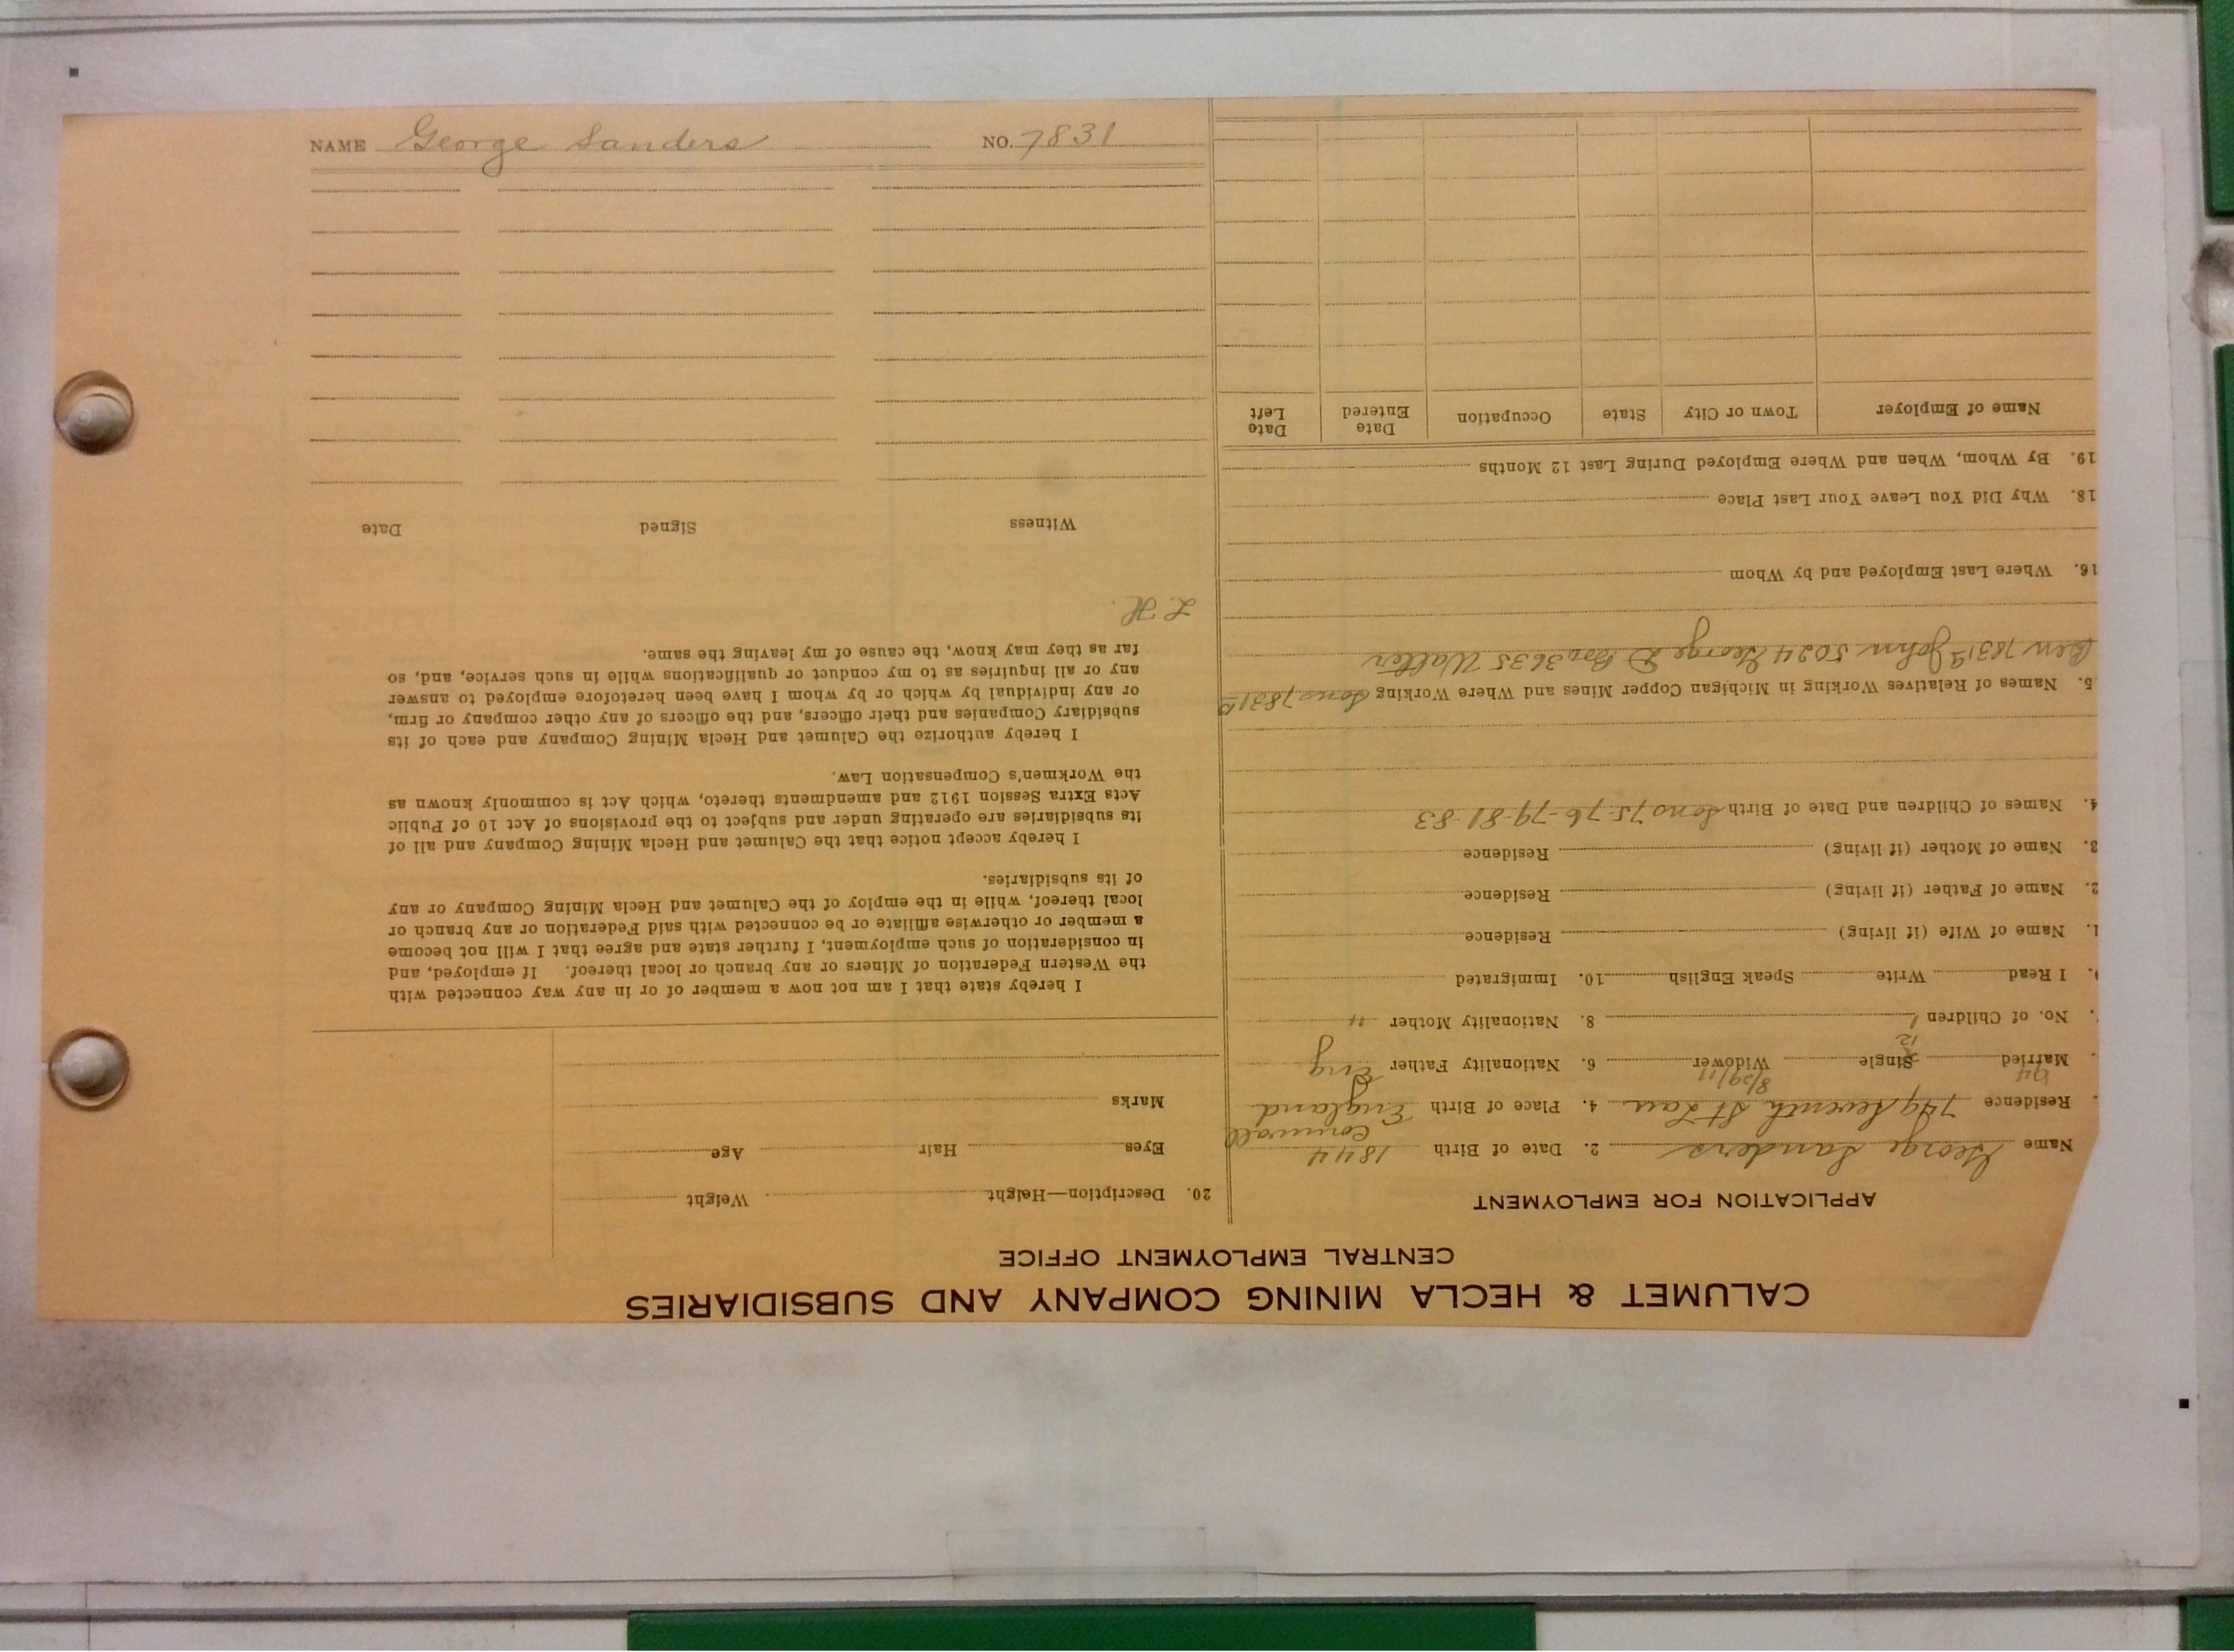 NAME George Sanders NO. 7831
CALUMET & HECLA MINING COMPANY AND SUBSIDIARIES
CENTRAL EMPLOYMENT OFFICE
APPLICATION FOR EMPLOYMENT
Name George Sanders 2. Date of Birth 1844
Cornwall
Residence 749 Seventh St Lau 4. Place of Birth England
94 8/29/11
Married Single Widower 6. Nationality Father Eng
12
No. of Children 1 8. Nationality Mother "
I Read Write Speak English 10. Immigrated
1. Name of Wife (if living) Residence
2. Name of Father (if living) Residence
3. Name of Mother (if living) Residence
4. Names of Children and Date of Birth Sons 75-76-79-81-83
5. Names of Relatives Working in Michigan Copper Mines and Where Working Sons 7831
Ben 7831 John 5024 George D 3635 Walter
16. Where Last Employed and by Whom
18. Why Did You Leave Your Last Place
19. By Whom, When and Where Employed During Last 12 Months
Name of Employer Town or City State Occupation Date Entered Date Left
20. Description—Height Weight
Eyes Hair Age
Marks
I hereby state that I am not now a member of or in any way connected with
the Western Federation of Miners or any branch or local thereof. If employed, and
in consideration of such employment, I further state and agree that I will not become
a member or otherwise affiliate or be connected with said Federation or any branch or
local thereof, while in the employ of the Calumet and Hecla Mining Company or any
of its subsidiaries.
I hereby accept notice that the Calumet and Hecla Mining Company and all of
its subsidiaries are operating under and subject to the provisions of Act 10 of Public
Acts Extra Session 1912 and amendments thereto, which Act is commonly known as
the Workmen's Compensation Law.
I hereby authorize the Calumet and Hecla Mining Company and each of its
subsidiary Companies and their officers, and the officers of any other company or firm,
or any individual by which or by whom I have been heretofore employed to answer
any or all inquiries as to my conduct or qualifications while in such service, and, so
far as they may know, the cause of my leaving the same.
L. H.
Witness Signed Date